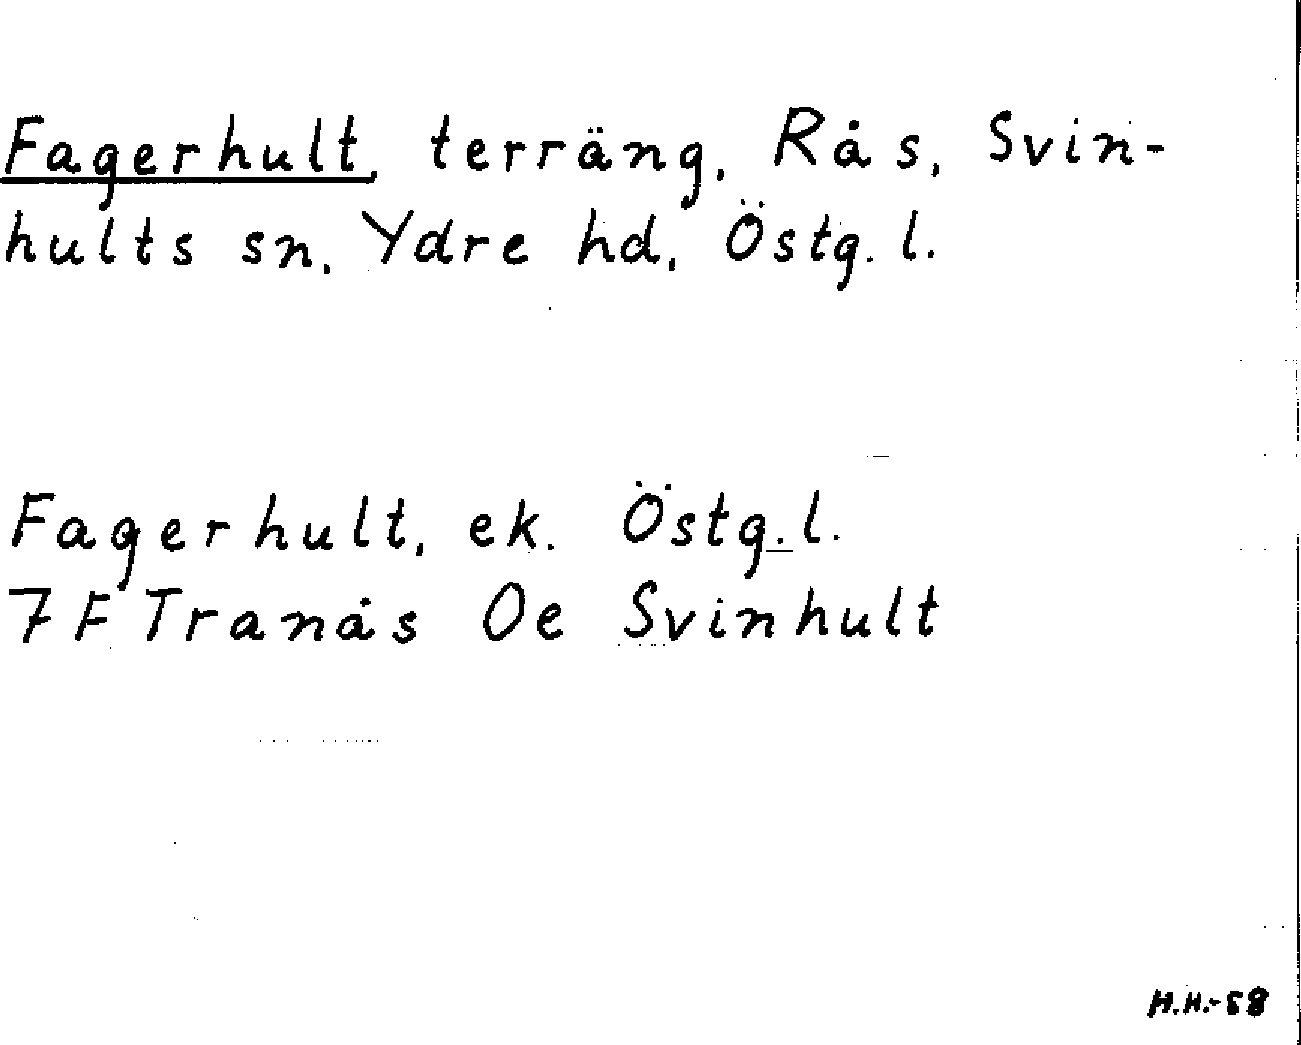 Fagerhult, terräng, Rås, Svin-
hults sn, Ydre hd, Östg. l.
Fagerhult, ek. Östg. l.
7 F Tranås Oe Svinhult
H.H.-58